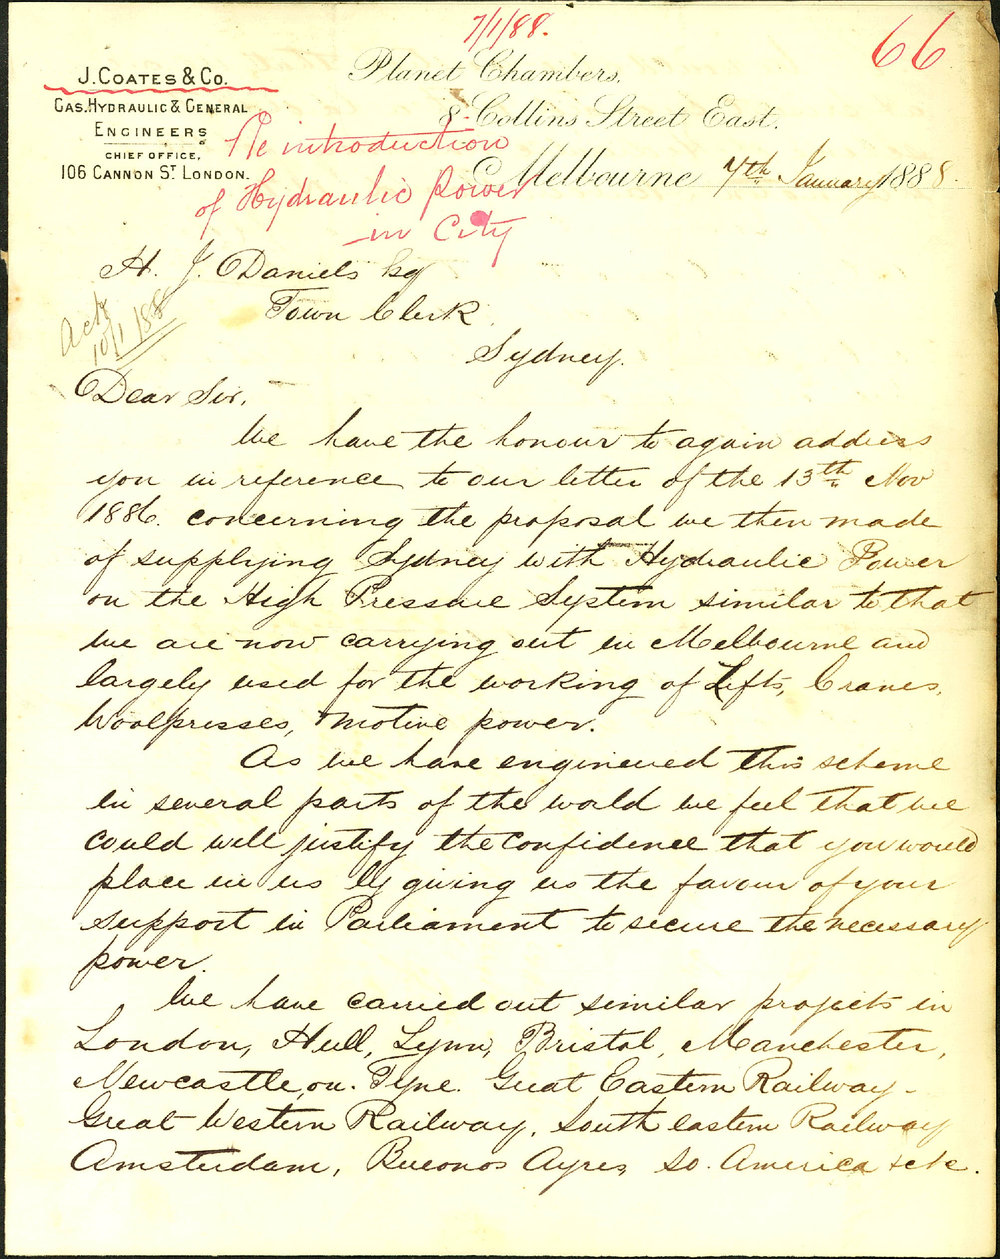 7/1/88.
66
J. COATES & CO.
GAS. HYDRAULIC & GENERAL
ENGINEERS
CHIEF OFFICE,
106 CANNON ST LONDON.
Planet Chambers,
8 Collins Street East.
Melbourne 7th January 1888.
Re introduction
of Hydraulic Power
in City
H. J. Daniels Esq
Town Clerk
Sydney.
Ack
10/1/88
Dear Sir,
We have the honour to again address
you in reference to our letter of the 13th Nov
1886. concerning the proposal we then made
of supplying Sydney with Hydraulic Power
on the High Pressure System similar to that
we are now carrying out in Melbourne and
largely used for the working of Lifts, Cranes,
Woolpresses, motive power.
As we have engineered this scheme
in several parts of the world we feel that we
could well justify the confidence that you would
place in us by giving us the favour of your
support in Parliament to secure the necessary
power.
We have carried out similar projects in
London, Hull, Lynn, Bristol, Manchester,
Newcastle on. Tyne. Great Eastern Railway -
Great Western Railway, South eastern Railway
Amsterdam, Bueonos Ayres, So. America &c &c.